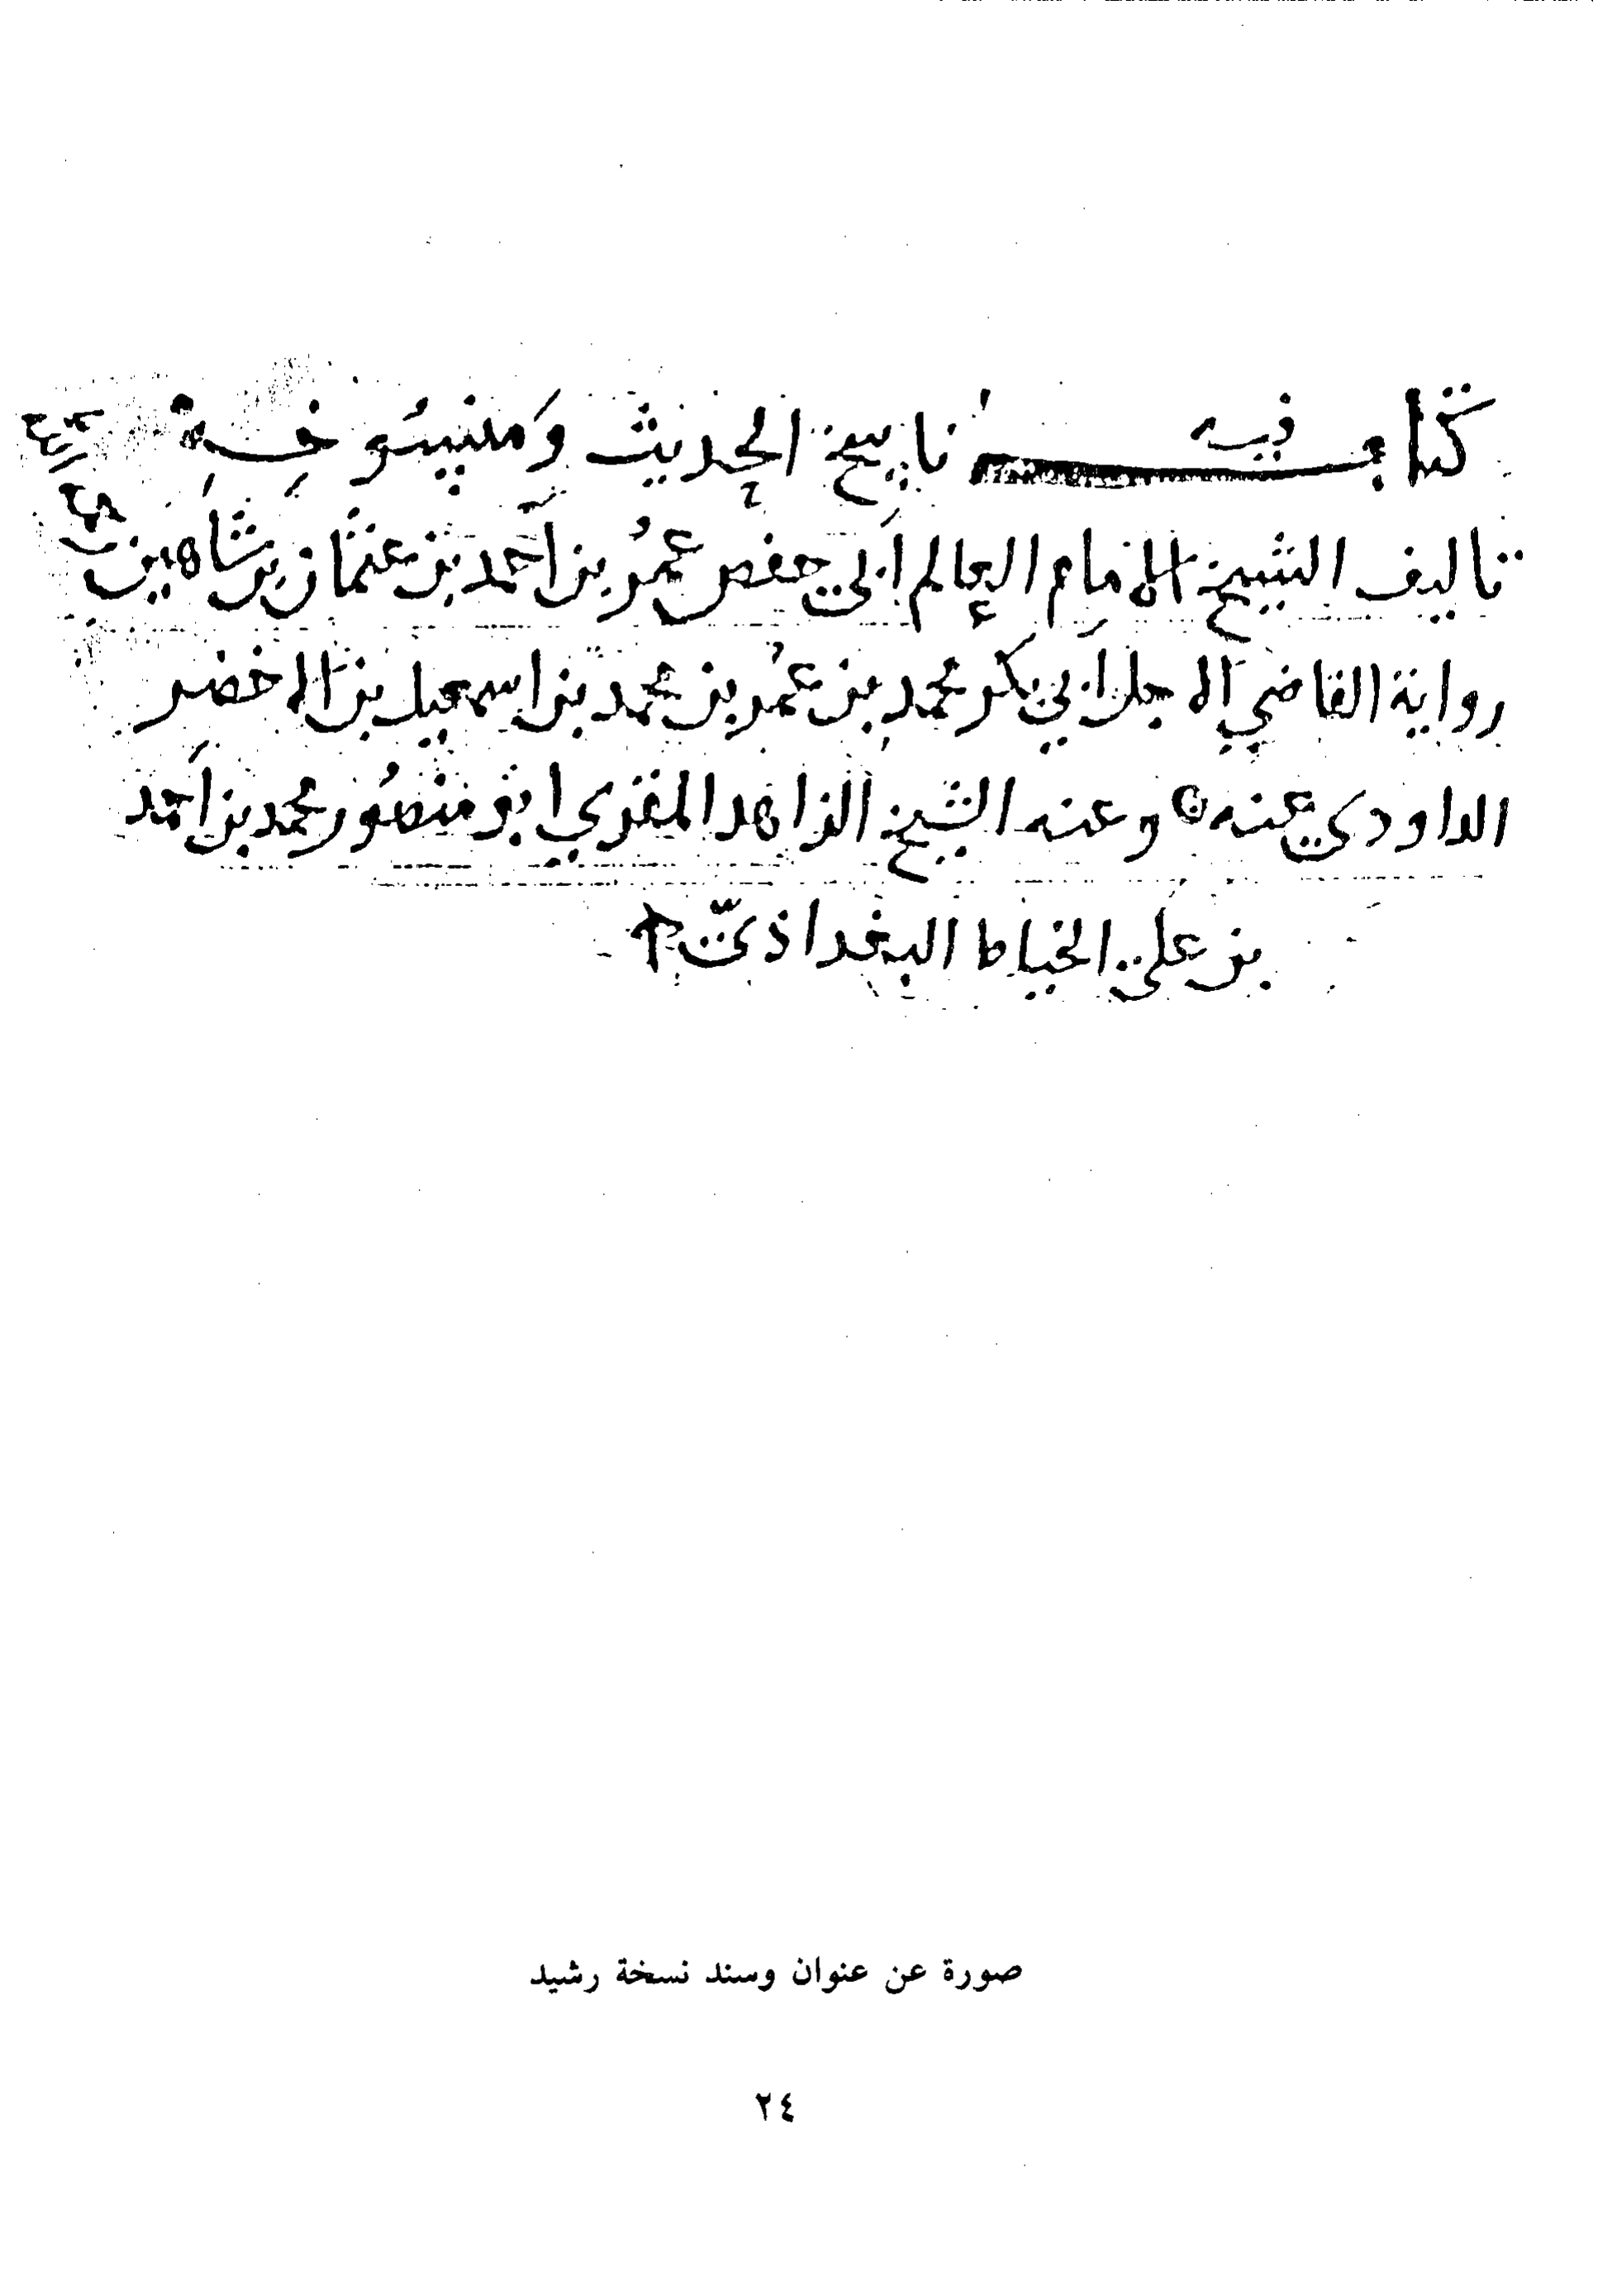 كتاب فيه ناسخ الحديث ومنسوخه
تاليف الشيخ الامام العالم ابي حفص عمر بن احمد بن عثمان بن شاهين
رواية القاضي الاجل ابي بكر محمد بن عمر بن محمد بن اسمعيل بن الاخضر
الداودي عنه ه وعنه الشيخ الزاهد المقري ابو منصور محمد بن احمد
بن علي الخياط البغداذي
صورة عن عنوان وسند نسخة رشيد
٢٤